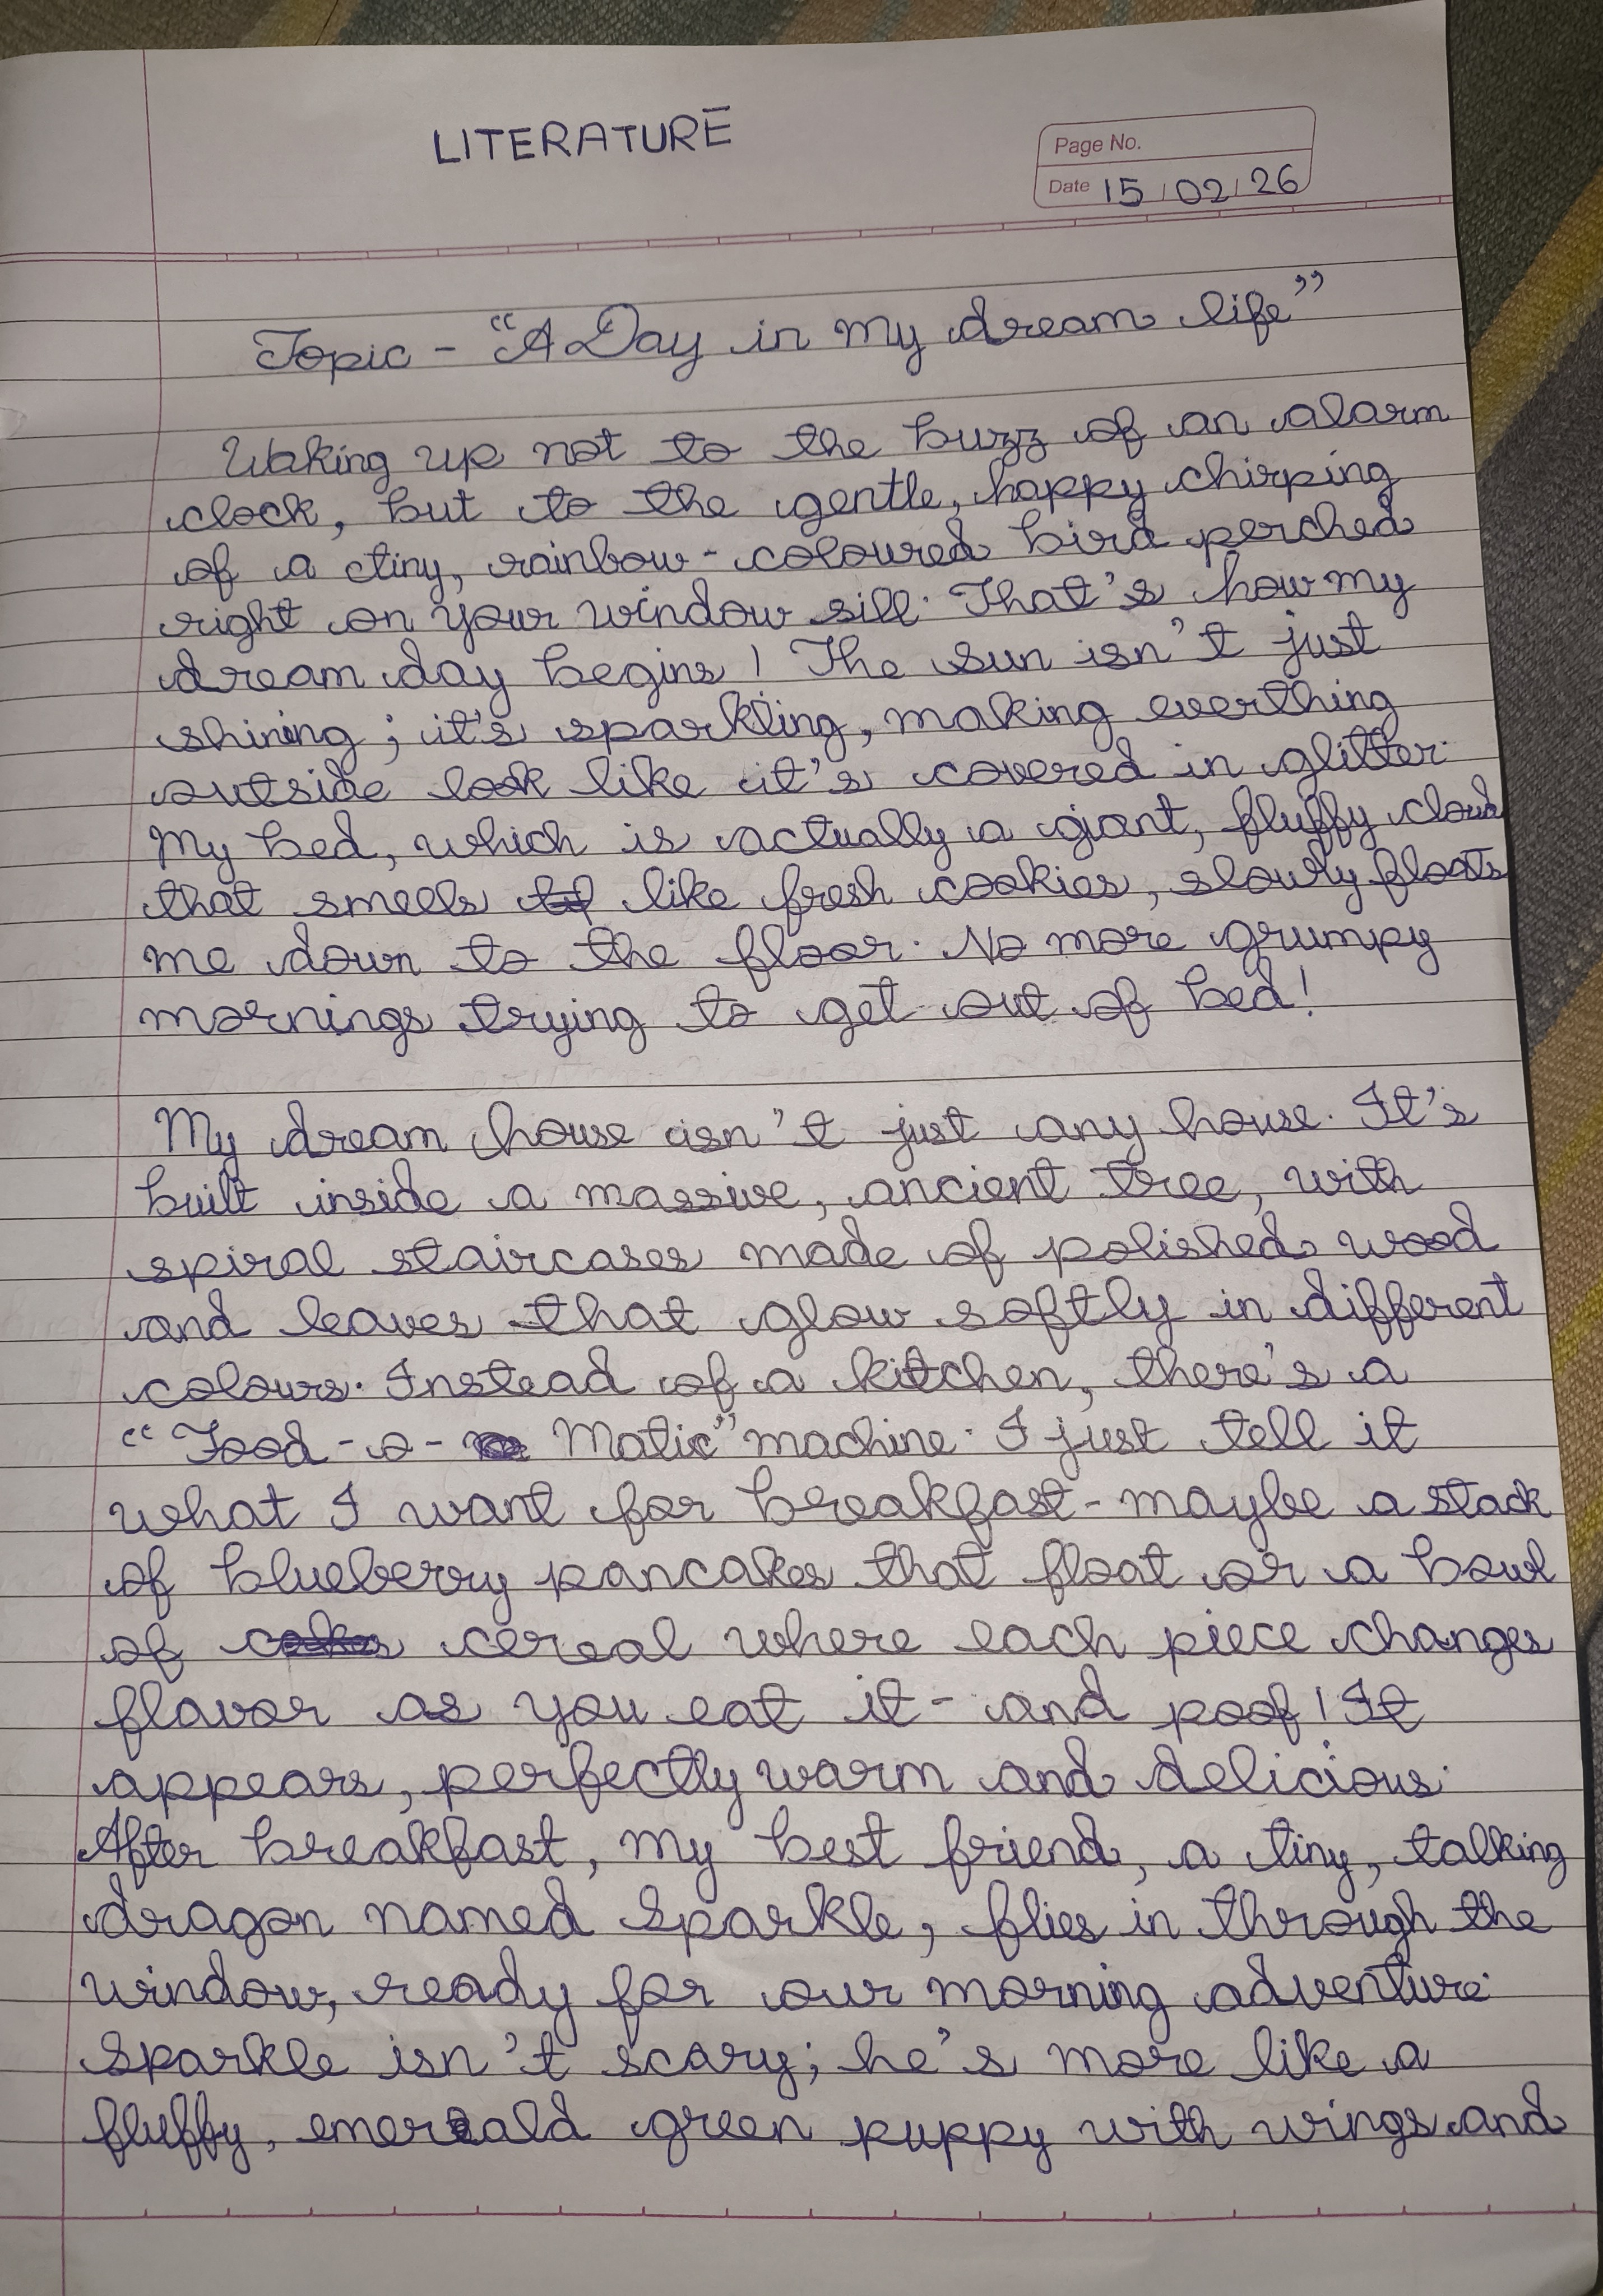 LITERATURE
Page No.
Date 15/02/26
Topic - "A Day in my dream life"
Waking up not to the buzz of an alarm
clock, but to the gentle, happy chirping
of a tiny, rainbow-coloured bird perched
right on your window sill. That's how my
dream day begins! The sun isn't just
shining; it's sparkling, making everthing
outside look like it's covered in glitter.
My bed, which is actually a giant, fluffy cloud
that smells like fresh cookies, slowly floats
me down to the floor. No more grumpy
mornings trying to get out of bed!
My dream house isn't just any house. It's
built inside a massive, ancient tree, with
spiral staircases made of polished wood
and leaves that glow softly in different
colours. Instead of a kitchen, there's a
"Food-o-Matic" machine. I just tell it
what I want for breakfast-maybe a stack
of blueberry pancakes that float or a bowl
of cereal where each piece changes
flavor as you eat it - and poof! It
appears, perfectly warm and delicious.
After breakfast, my best friend, a tiny, talking
dragon named Sparkle, flies in through the
window, ready for our morning adventure.
Sparkle isn't scary; he's more like a
fluffy, emerald green puppy with wings and